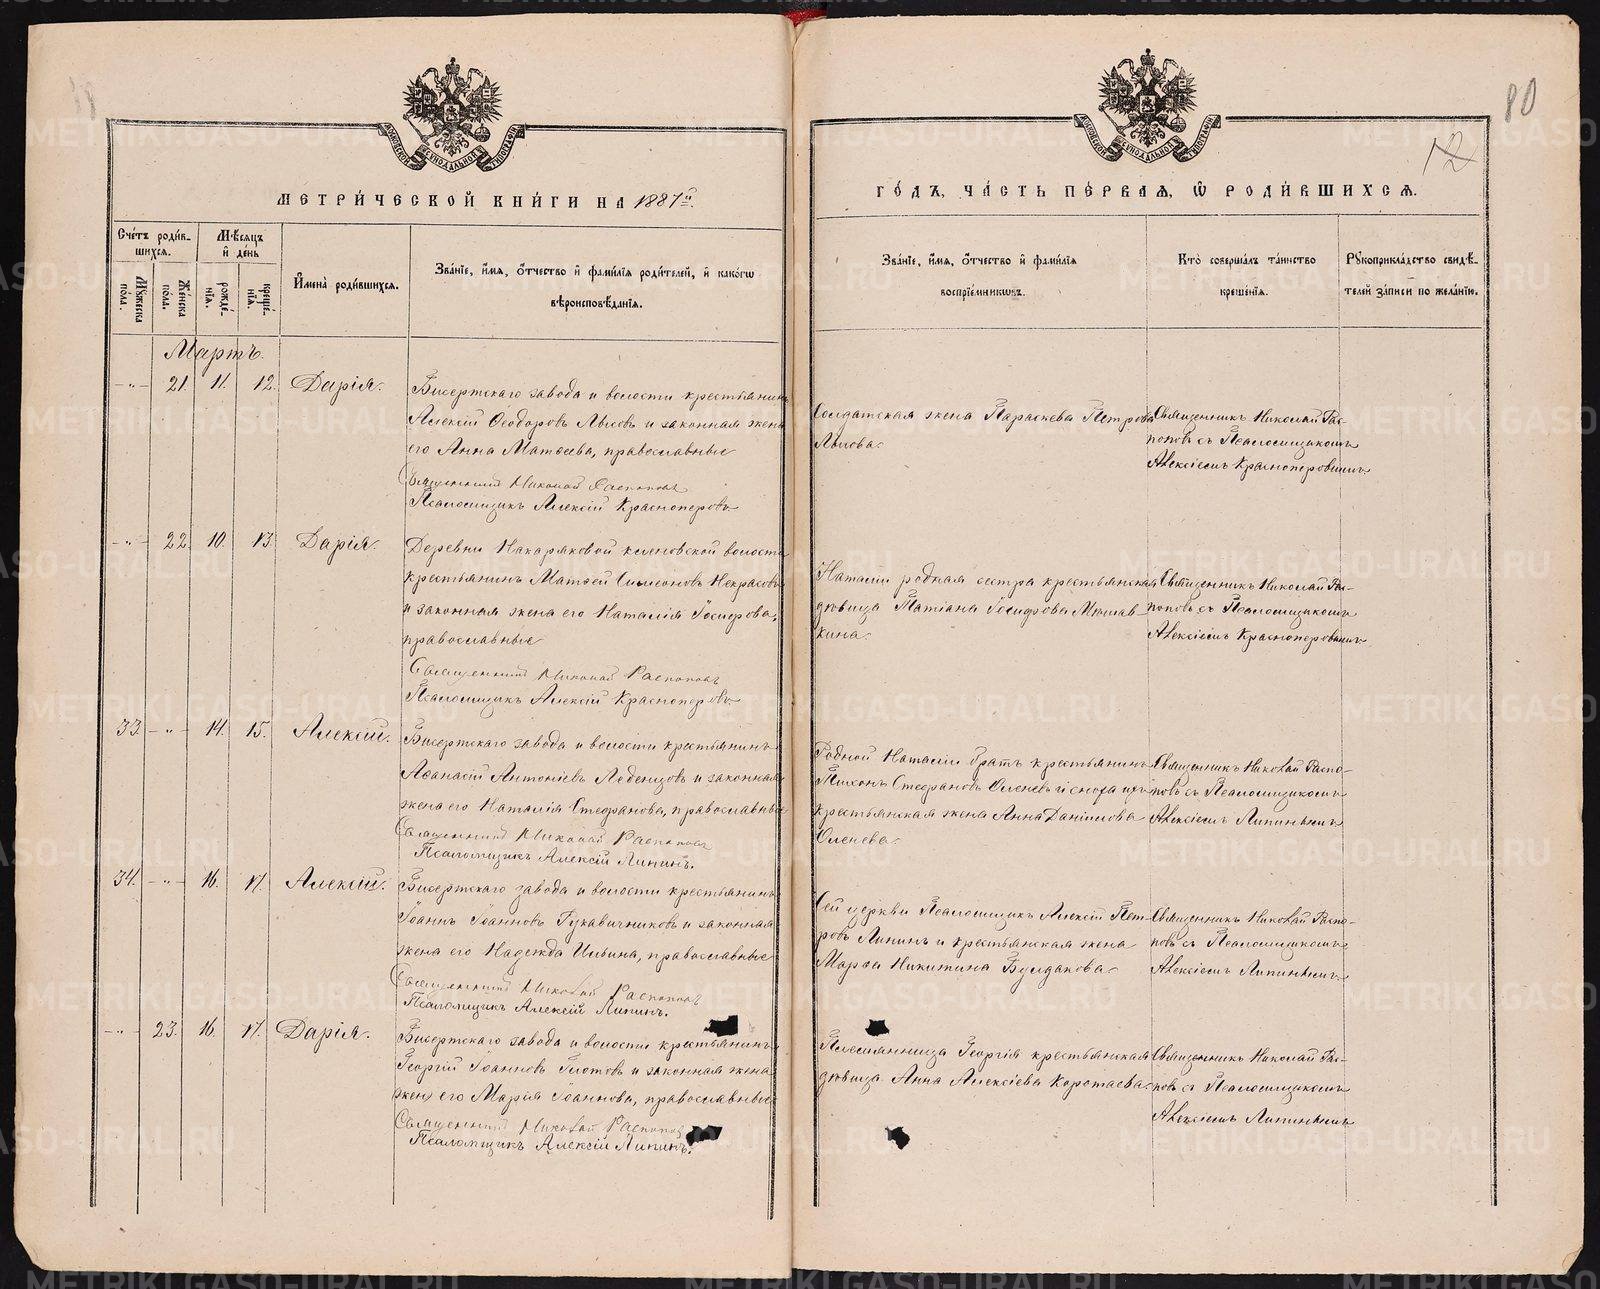 80
12
МЕТРИ́ЧЕСКОЙ КНИ́ГИ НА 1887й.
ГО́ДЪ, ЧА́СТЬ ПЕ́РВАЯ, Ѡ РОДИ́ВШИХСѦ.
Сче́тъ роди́в-
шихсѧ.
Мꙋжеска по́ла.
Же́нска по́ла.
Мѣ́сѧцъ
и́ де́нь
рожде́-
нїѧ.
креще́-
нїѧ.
И҆мена̀ роди́вшихсѧ.
Зва́нїе, и҆́мѧ, ѻ҆́тчество и҆ фами́лїѧ роди́телей, и҆ како́гѡ
вѣроисповѣ́данїѧ.
Зва́нїе, и҆́мѧ, ѻ҆́тчество и҆ фами́лїѧ
воспрїе́мникѡвъ.
Кто̀ соверша́лъ та́инство
креще́нїѧ.
Рꙋкоприкла́дство свидѣ́-
телей за́писи по жела́нїю.
Мартъ.
-"- 21. 11. 12. Дарія.
Бисертскаго завода и волости крестьянинъ
Алексій Ѳеодоровъ Лысовъ и законная жена
его Анна Матѳеева, православные
Священникъ Николай Распоповъ
Псаломщикъ Алексій Красноперовъ
Солдатская жена Параскева Петрова
Лысова.
Священникъ Николай Рас-
поповъ съ Псаломщикомъ
Алексіемъ Красноперовымъ
-"- 22. 10. 13. Дарія.
Деревни Накаряковой кленовской волости
крестьянинъ Матѳей Симеоновъ Некрасовъ
и законная жена его Наталія Іосифова,
православные
Священникъ Николай Распоповъ
Псаломщикъ Алексій Красноперовъ
Наталіи родная сестра крестьянская
дѣвица Татіана Іосифова
кина.
Священникъ Николай Рас-
поповъ съ Псаломщикомъ
Алексіемъ Красноперовымъ
33. -"- 14. 15. Алексій.
Бисертскаго завода и волости крестьянинъ
Аѳанасій Антоніевъ Леденцовъ и законная
жена его Наталія Стефанова, православные
Священникъ Николай Распоповъ
Псаломщикъ Алексій Липинъ.
Родной Наталіи братъ крестьянинъ
Тихонъ Стефановъ Оленевъ и сноха ихъ
крестьянская жена Анна Даніилова
Оленева.
Священникъ Николай Распо-
повъ съ Псаломщикомъ
Алексіемъ Липинымъ
34. -"- 16. 17. Алексій.
Бисертскаго завода и волости крестьянинъ
Іоаннъ Іоанновъ Рукавичниковъ и законная
жена его Надежда Ильина, православные
Священникъ Николай Распоповъ
Псаломщикъ Алексій Липинъ.
Сей церкви Псаломщикъ Алексій Пет-
ровъ Липинъ и крестьянская жена
Марѳа Никитина Булдакова.
Священникъ Николай Распо-
повъ съ Псаломщикомъ
Алексіемъ Липинымъ
-"- 23. 16. 17. Дарія.
Бисертскаго завода и волости крестьянинъ
Георгій Іоанновъ Глотовъ и законная жена
его Марія Іоаннова, православные
Священникъ Николай Распоповъ
Псаломщикъ Алексій Липинъ.
Племянница Георгія крестьянская
дѣвица Анна Алексіева Коротаева
Священникъ Николай Рас-
повъ съ Псаломщикомъ
Алексіемъ Липинымъ
METRIKI.GASO-URAL.RU